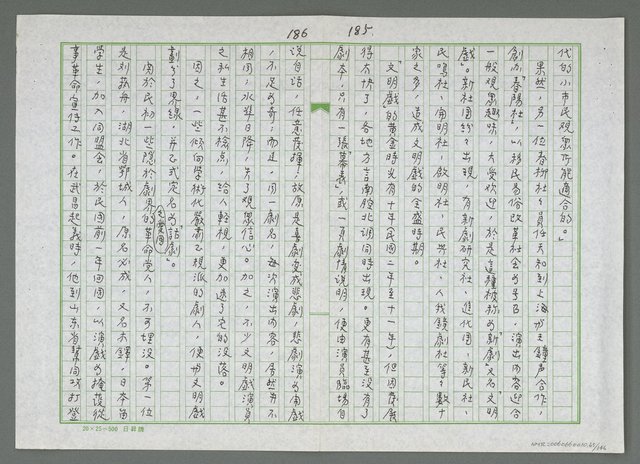 186
185.
代的小市民觀眾所能適合的。」
果然，另一位春柳社社員任天知到上海與王鐘聲合作，
創辦「春陽社」，以移民易俗改革社會為號召，演出內容迎合
一般觀眾趣味，大受歡迎，於是這種被稱為「新劇」又名「文明
戲」。新社團紛紛出現，有新劇研究社、進化團、新民社、
民鳴社、開明社、啟明社、民興社、人我鏡劇社等等數十
家之多，造成文明戲的全盛時期。
文明戲的黃金時光有十年民國二年至十一年，但因發展
得太快了，各地方言南腔北調同時出現。更有甚至沒有了
劇本，只有一張「幕表」，或一頁劇情說明，便由演員臨場自
說自話，任意發揮，故原是喜劇變成悲劇，悲劇演為鬧戲
，不足為奇；而且，同一劇名，每次演出內容，居然前不
相同，水準日降，失了觀眾信心。加之，不少文明戲演員
之私生活甚不檢點，給人輕視，更加速了它的沒落。
因之，一些傾向學術化嚴肅正視派的劇人，便與文明戲
劃分了界線，并正式定名為「話劇」。
關於民初一些隱於劇界的革命黨人，不可埋沒。第一位
是劉藝舟，湖北省鄂城人，原名必成，又名木鐸，日本留
學生，加入同盟會，於民國前一年回國，以演戲為掩護從
事革命宣傳工作。在武昌起義時，他到山東省幫同攻打登
20×25＝500 日昇牌